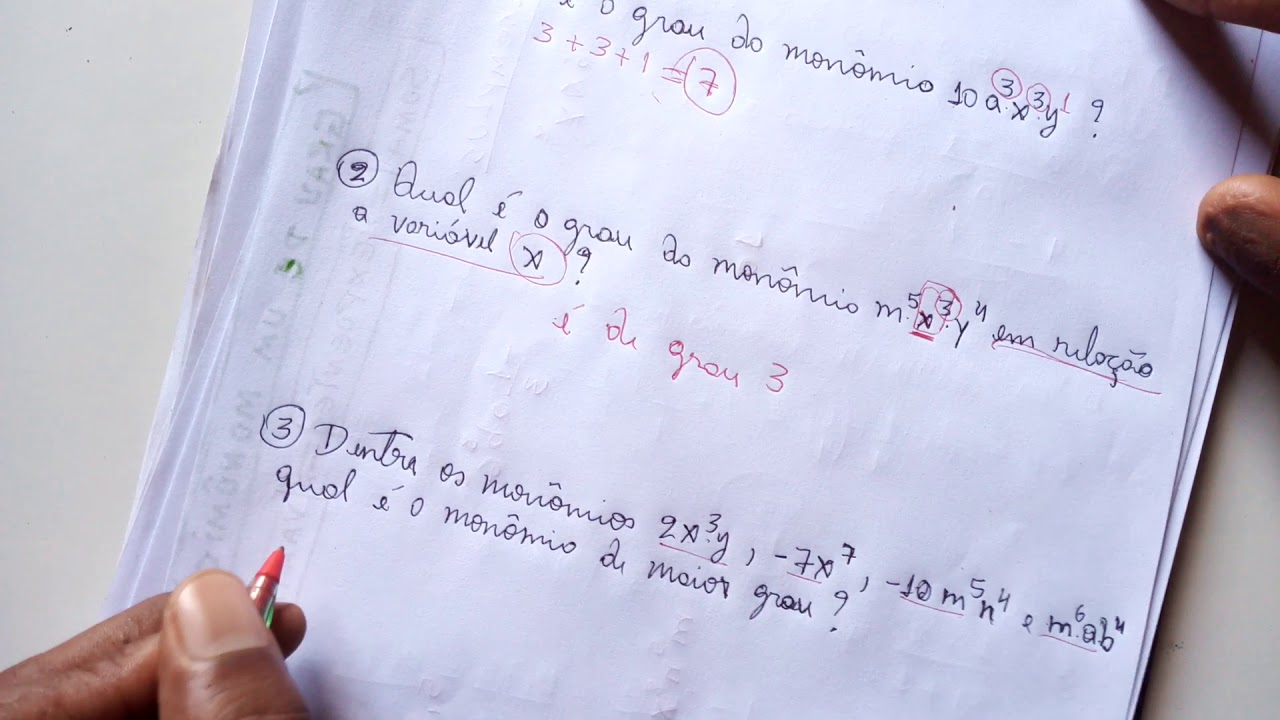 é o grau do monômio 10a³.x³.y¹ ?
3 + 3 + 1 = 7
② Qual é o grau do monômio m⁵.x³.y⁴ em relação
a variável x ?
é de grau 3
③ Dentre os monômios 2x³.y , -7x⁷ , -10m⁵n⁴ e m⁶.ab⁴
qual é o monômio de maior grau ?